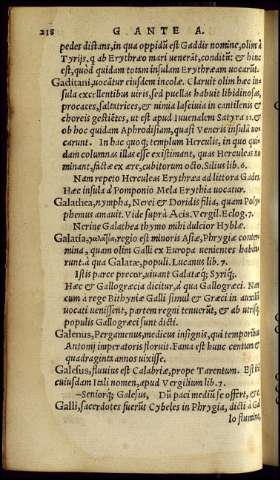 218 G. ANTE A.
pedes distans, in qua oppidū est Gaddir nomine, olim à
Tyrijs, q ab Erythræo mari venerāt, conditū: & hinc
est, quòd quidam totum insulam Erythræam uocarūt.
Gaditani, uocātur eiusdem incolæ. Claruit olim hæc in
sula excellentibus uiris, sed puellas habuit libidinosas,
procaces, saltatrices, & nimia lasciuia in cantilenis &
choreis gestiētes, ut est apud Iuuenalem Satyra 11. &
ob hoc quidam Aphrodisiam, quasi Veneris insulā uo-
carunt. In hac quoq; templum Herculis, in quo qui-
dam columnas illas esse existimant, quas Herculeas no
minant, factæ ex ære, cubitorum octo. Silius lib. 6.
Nam repeto Herculeas Erythræa ad littora Gades.
Hæc insula à Pomponio Mela Erythia uocatur.
Galathea, nympha, Nerei & Doridis filia, quam Poly
phemus amauit. Vide suprà Acis. Vergil. Eclog. 7.
Nerine Galathea thymo mihi dulcior Hyblæ.
Galatia, γαλατία, regio est minoris Asiæ, Phrygiæ contermina,
quam olim Galli ex Europa uenientes habitarunt.
à qua Galatæ, populi. Lucanus lib. 7.
Istis parce precor, uiuant Galatæq;, Syriq;.
Hæc & Gallogræcia dicitur, à qua Gallogræci. Nam
cum à rege Bithyniæ Galli simul & Græci in auxiliū
uocati uenissent, partem regni tenuerūt, & ab utrisq;
populis Gallogræci sunt dicti.
Galenus, Pergamenus, medicus insignis, qui temporibus
Antonij imperatoris floruit. Fama est hunc centum &
quadraginta annos uixisse.
Galesus, fluuius est Calabriæ, prope Tarentum. Est &
cuiusdam Itali nomen, apud Vergilium lib. 7.
—Seniorq; Galesus, Dū paci mediū se offert, &c.
Galli, sacerdotes fuerūt Cybeles in Phrygia, dicti à Gal
lo flumine,